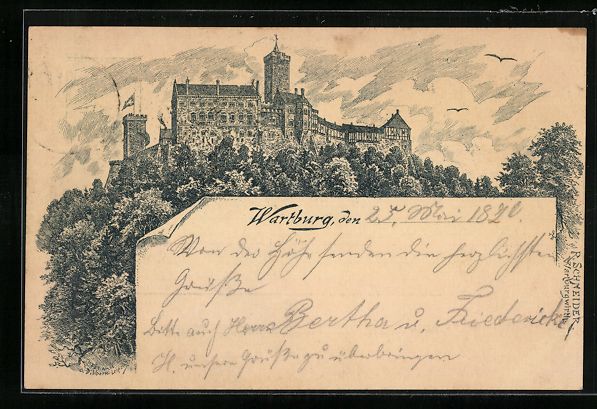 Wartburg, den 25. Mai 1890.
Von der Höh senden die herzlichsten
Grüße
Bitte auch Bertha u. Friedericke
H. unsere Grüße zu überbringen
R. SCHNEIDER
Wartburgwirth